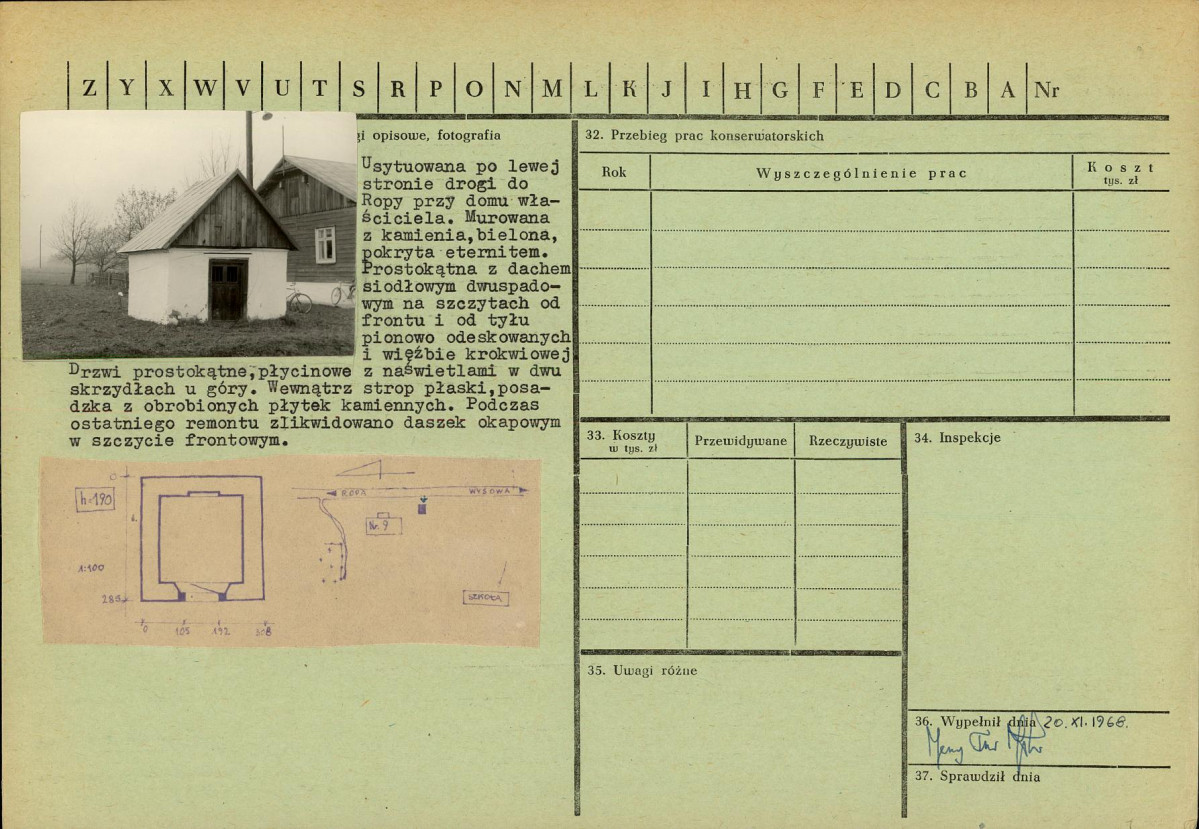 Z Y X W V U T S R P O N M L K J I H G F E D C B A Nr
gi opisowe, fotografia
Usytuowana po lewej
stronie drogi do
Ropy przy domu wła-
ściciela. Murowana
z kamienia, bielona,
pokryta eternitem.
Prostokątna z dachem
siodłowym dwuspado-
wym na szczytach od
frontu i od tyłu
pionowo odeskowanych
i więźbie krokwiowej
Drzwi prostokątne, płycinowe z naświetlami w dwu
skrzydłach u góry. Wewnątrz strop płaski, posa-
dzka z obrobionych płytek kamiennych. Podczas
ostatniego remontu zlikwidowano daszek okapowym
w szczycie frontowym.
0
h=190
1:100
285
0 105 192 308
ROPA WYSOWA
Nr. 9
SZKOŁA
32. Przebieg prac konserwatorskich
Rok Wyszczególnienie prac Koszt
tys. zł
33. Koszty
w tys. zł
Przewidywane Rzeczywiste
34. Inspekcje
35. Uwagi różne
36. Wypełnił dnia 20.XI.1968.
37. Sprawdził dnia